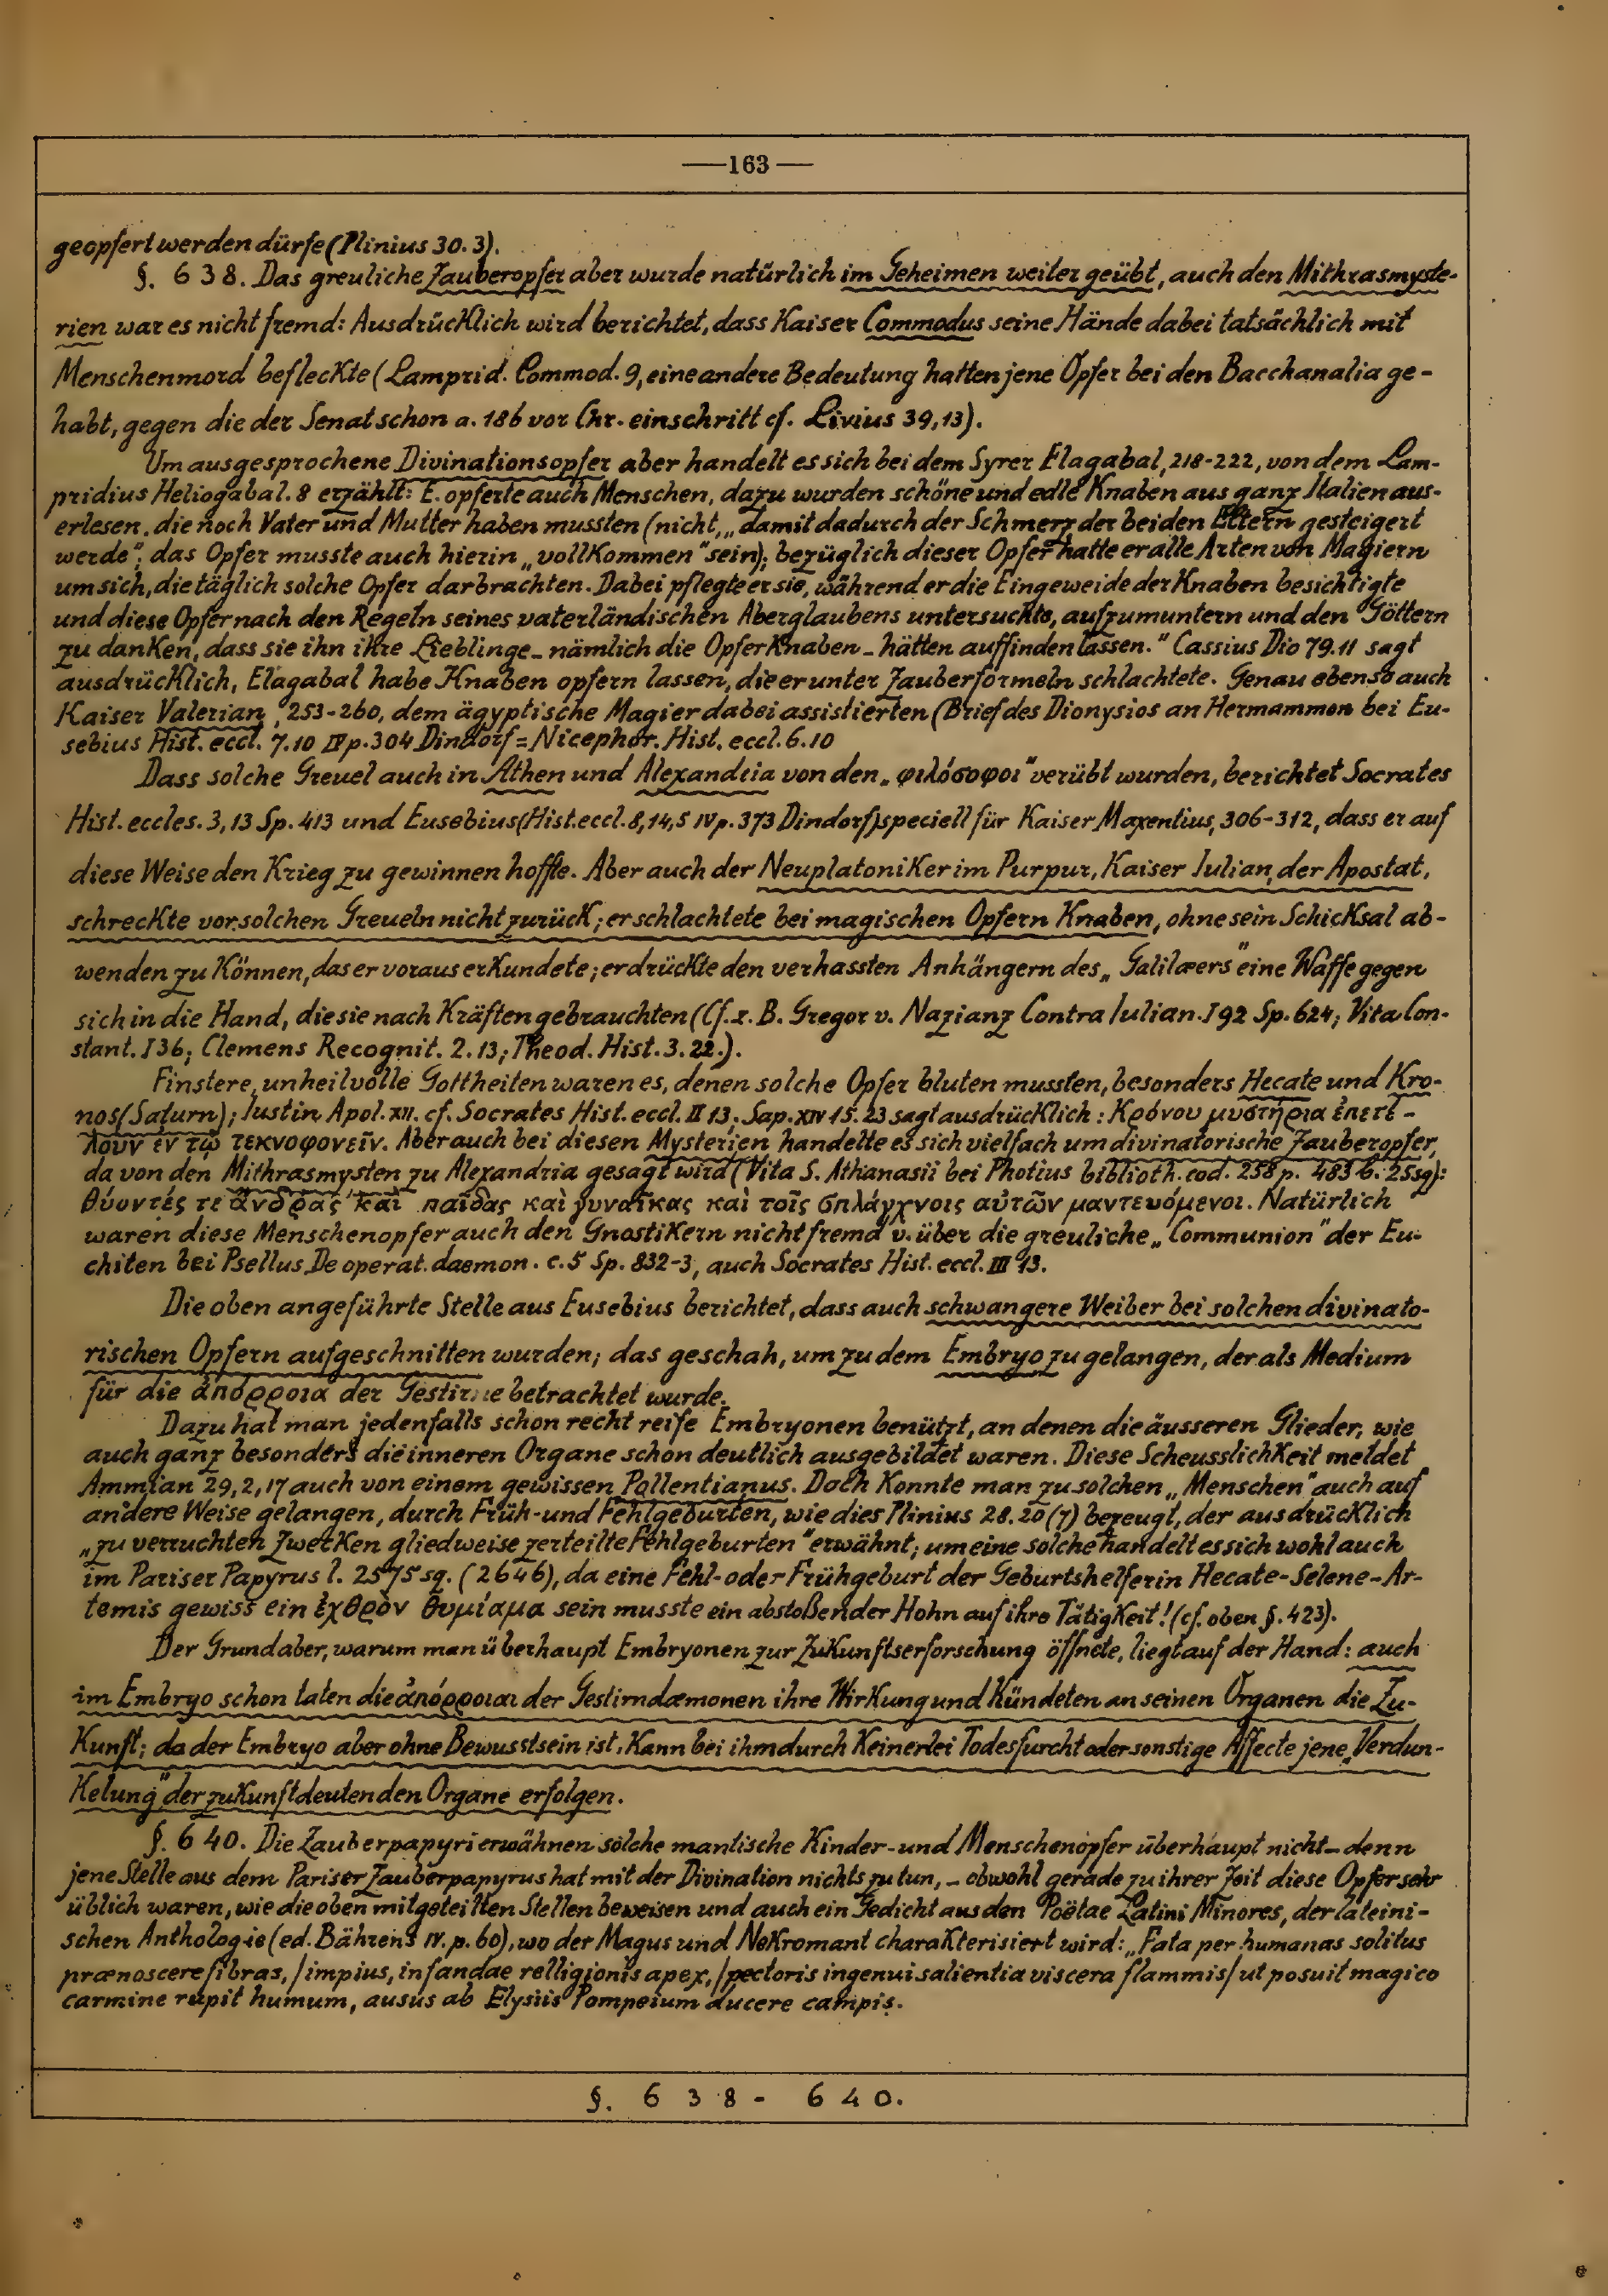 —163—
geopfert werden dürfe (Plinius 30. 3).
§. 638. Das greuliche Zauberopfer aber wurde natürlich im Geheimen weiter geübt, auch den Mithrasmyste-
rien war es nicht fremd: Ausdrücklich wird berichtet, dass Kaiser Commodus seine Hände dabei tatsächlich mit
Menschenmord befleckte (Lamprid. Commod. 9, eine andere Bedeutung hatten jene Opfer bei den Bacchanalia ge-
habt, gegen die der Senat schon a. 186 vor Chr. einschritt cf. Livius 39,13).
Um ausgesprochene Divinationsopfer aber handelt es sich bei dem Syrer Elagabal, 218-222, von dem Lam-
pridius Heliogabal. 8 erzählt: E. opferte auch Menschen, dazu wurden schöne und edle Knaben aus ganz Italien aus-
erlesen, die noch Vater und Mutter haben mussten (nicht, „damit dadurch der Schmerz der beiden Eltern gesteigert
werde“, das Opfer musste auch hierin „vollkommen“ sein); bezüglich dieser Opfer hatte er alle Arten von Magiern
um sich, die täglich solche Opfer darbrachten. Dabei pflegte er sie, während er die Eingeweide der Knaben besichtigte
und diese Opfer nach den Regeln seines vaterländischen Aberglaubens untersuchte, aufzumuntern und den Göttern
zu danken, dass sie ihn ihre Lieblinge - nämlich die Opferknaben - hätten auffinden lassen.“ Cassius Dio 79.11 sagt
ausdrücklich, Elagabal habe Knaben opfern lassen, die er unter Zauberformeln schlachtete. Genau ebenso auch
Kaiser Valerian, 253-260, dem ägyptische Magier dabei assistierten (Brief des Dionysios an Hermammon bei Eu-
sebius Hist. eccl. 7.10 IV p. 304 Dindorf = Nicephor. Hist. eccl. 6.10
Dass solche Greuel auch in Athen und Alexandria von den „φιλόσοφοι“ verübt wurden, berichtet Socrates
Hist. eccles. 3,13 Sp. 413 und Eusebius (Hist. eccl. 8,14,5 IV p. 373 Dindorf) speciell für Kaiser Maxentius, 306-312, dass er auf
diese Weise den Krieg zu gewinnen hoffte. Aber auch der Neuplatoniker im Purpur, Kaiser Iulian, der Apostat,
schreckte vor solchen Greueln nicht zurück; er schlachtete bei magischen Opfern Knaben, ohne sein Schicksal ab-
wenden zu können, das er voraus erkundete; er drückte den verhassten Anhängern des „Galilæers“ eine Waffe gegen
sich in die Hand, die sie nach Kräften gebrauchten (Cf. z. B. Gregor v. Nazianz Contra Iulian. I 92 Sp. 624; Vita Con-
stant. I 36; Clemens Recognit. 2. 13; Theod. Hist. 3. 22.).
Finstere, unheilvolle Gottheiten waren es, denen solche Opfer bluten mussten, besonders Hecate und Kro-
nos (Saturn); Iustin Apol. XII. cf. Socrates Hist. eccl. II 13; Sap. XIV 15. 23 sagt ausdrücklich: Κρόνου μυστήρια ἐπετέ-
λουν ἐν τῷ τεκνοφονεῖν. Aber auch bei diesen Mysterien handelte es sich vielfach um divinatorische Zauberopfer,
da von den Mithrasmysten zu Alexandria gesagt wird (Vita S. Athanasii bei Photius biblioth. cod. 258 p. 483 b. 25 sq):
θύοντές τε ἄνδρας καὶ παῖδας καὶ γυναῖκας καὶ τοῖς σπλάγχνοις αὐτῶν μαντευόμενοι. Natürlich
waren diese Menschenopfer auch den Gnostikern nicht fremd v. über die greuliche „Communion“ der Eu-
chiten bei Psellus, De operat. daemon. c. 5 Sp. 832-3, auch Socrates Hist. eccl. III 13.
Die oben angeführte Stelle aus Eusebius berichtet, dass auch schwangere Weiber bei solchen divinato-
rischen Opfern aufgeschnitten wurden; das geschah, um zu dem Embryo zu gelangen, der als Medium
für die ἀπόρροια der Gestirne betrachtet wurde.
Dazu hat man jedenfalls schon recht reife Embryonen benützt, an denen die äusseren Glieder, wie
auch ganz besonders die inneren Organe schon deutlich ausgebildet waren. Diese Scheusslichkeit meldet
Ammian 29,2,17 auch von einem gewissen Pollentianus. Doch konnte man zu solchen „Menschen“ auch auf
andere Weise gelangen, durch Früh- und Fehlgeburten, wie dies Plinius 28. 20 (7) bezeugt, der ausdrücklich
„zu verruchten Zwecken gliedweise zerteilte Fehlgeburten“ erwähnt; um eine solche handelt es sich wohl auch
im Pariser Papyrus l. 2575 sq. (2646), da eine Fehl- oder Frühgeburt der Geburtshelferin Hecate-Selene-Ar-
temis gewiss ein ἐχθρὸν θυμίαμα sein musste ein abstoßender Hohn auf ihre Tätigkeit! (cf. oben §. 423).
Der Grund aber, warum man überhaupt Embryonen zur Zukunftserforschung öffnete, liegt auf der Hand: auch
im Embryo schon taten die ἀπόρροιαι der Gestirndæmonen ihre Wirkung und kündeten an seinen Organen die Zu-
kunft; da der Embryo aber ohne Bewusstsein ist, kann bei ihm durch keinerlei Todesfurcht oder sonstige Affecte jene „Verdun-
kelung“ der zukunftdeutenden Organe erfolgen.
§. 640. Die Zauberpapyri erwähnen solche mantische Kinder- und Menschenopfer überhaupt nicht - denn
jene Stelle aus dem Pariser Zauberpapyrus hat mit der Divination nichts zu tun, - obwohl gerade zu ihrer Zeit diese Opfer sehr
üblich waren, wie die oben mitgeteilten Stellen beweisen und auch ein Gedicht aus den Poëtae Latini Minores, der lateini-
schen Anthologie (ed. Bährens IV. p. 60), wo der Magus und Nekromant charakterisiert wird: „Fata per humanas solitus
prænoscere fibras, / impius, infandae relligionis apex, / pectoris ingenui salientia viscera flammis / ut posuit magico
carmine rupit humum, ausus ab Elysiis Pompeium ducere campis.
§. 638 - 640.